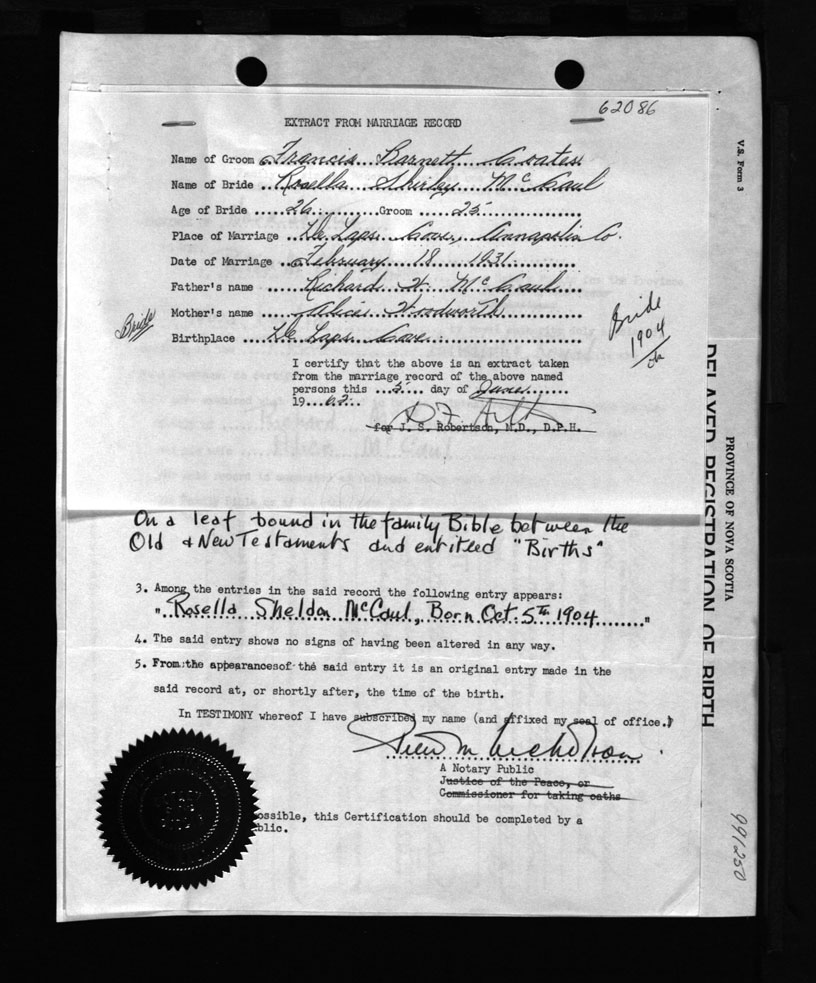 62086
EXTRACT FROM MARRIAGE RECORD
Name of Groom Francis Barnett Coates
Name of Bride Rosella Shirley McCaul
Age of Bride 26 Groom 25
Place of Marriage De Laps Cove, Annapolis Co.
Date of Marriage February 18 1931
Father's name Richard H. McCaul
Mother's name Alice Woodworth
Bride Birthplace De Laps Cove
Bride
1904
I certify that the above is an extract taken
from the marriage record of the above named
persons this 5 day of June
1963
for J. S. Robertson, M.D., D.P.H.
On a leaf bound in the family Bible between the
Old & New Testaments and entitled "Births"
3. Among the entries in the said record the following entry appears:
"Rosella Sheldon McCaul, Born Oct. 5th 1904"
4. The said entry shows no signs of having been altered in any way.
5. From the appearances of the said entry it is an original entry made in the
said record at, or shortly after, the time of the birth.
In TESTIMONY whereof I have subscribed my name (and affixed my seal of office.)
A Notary Public
Justice of the Peace, or
Commissioner for taking oaths
ossible, this Certification should be completed by a
blic.
V.S. Form 3
PROVINCE OF NOVA SCOTIA
DELAYED REGISTRATION OF BIRTH
991250